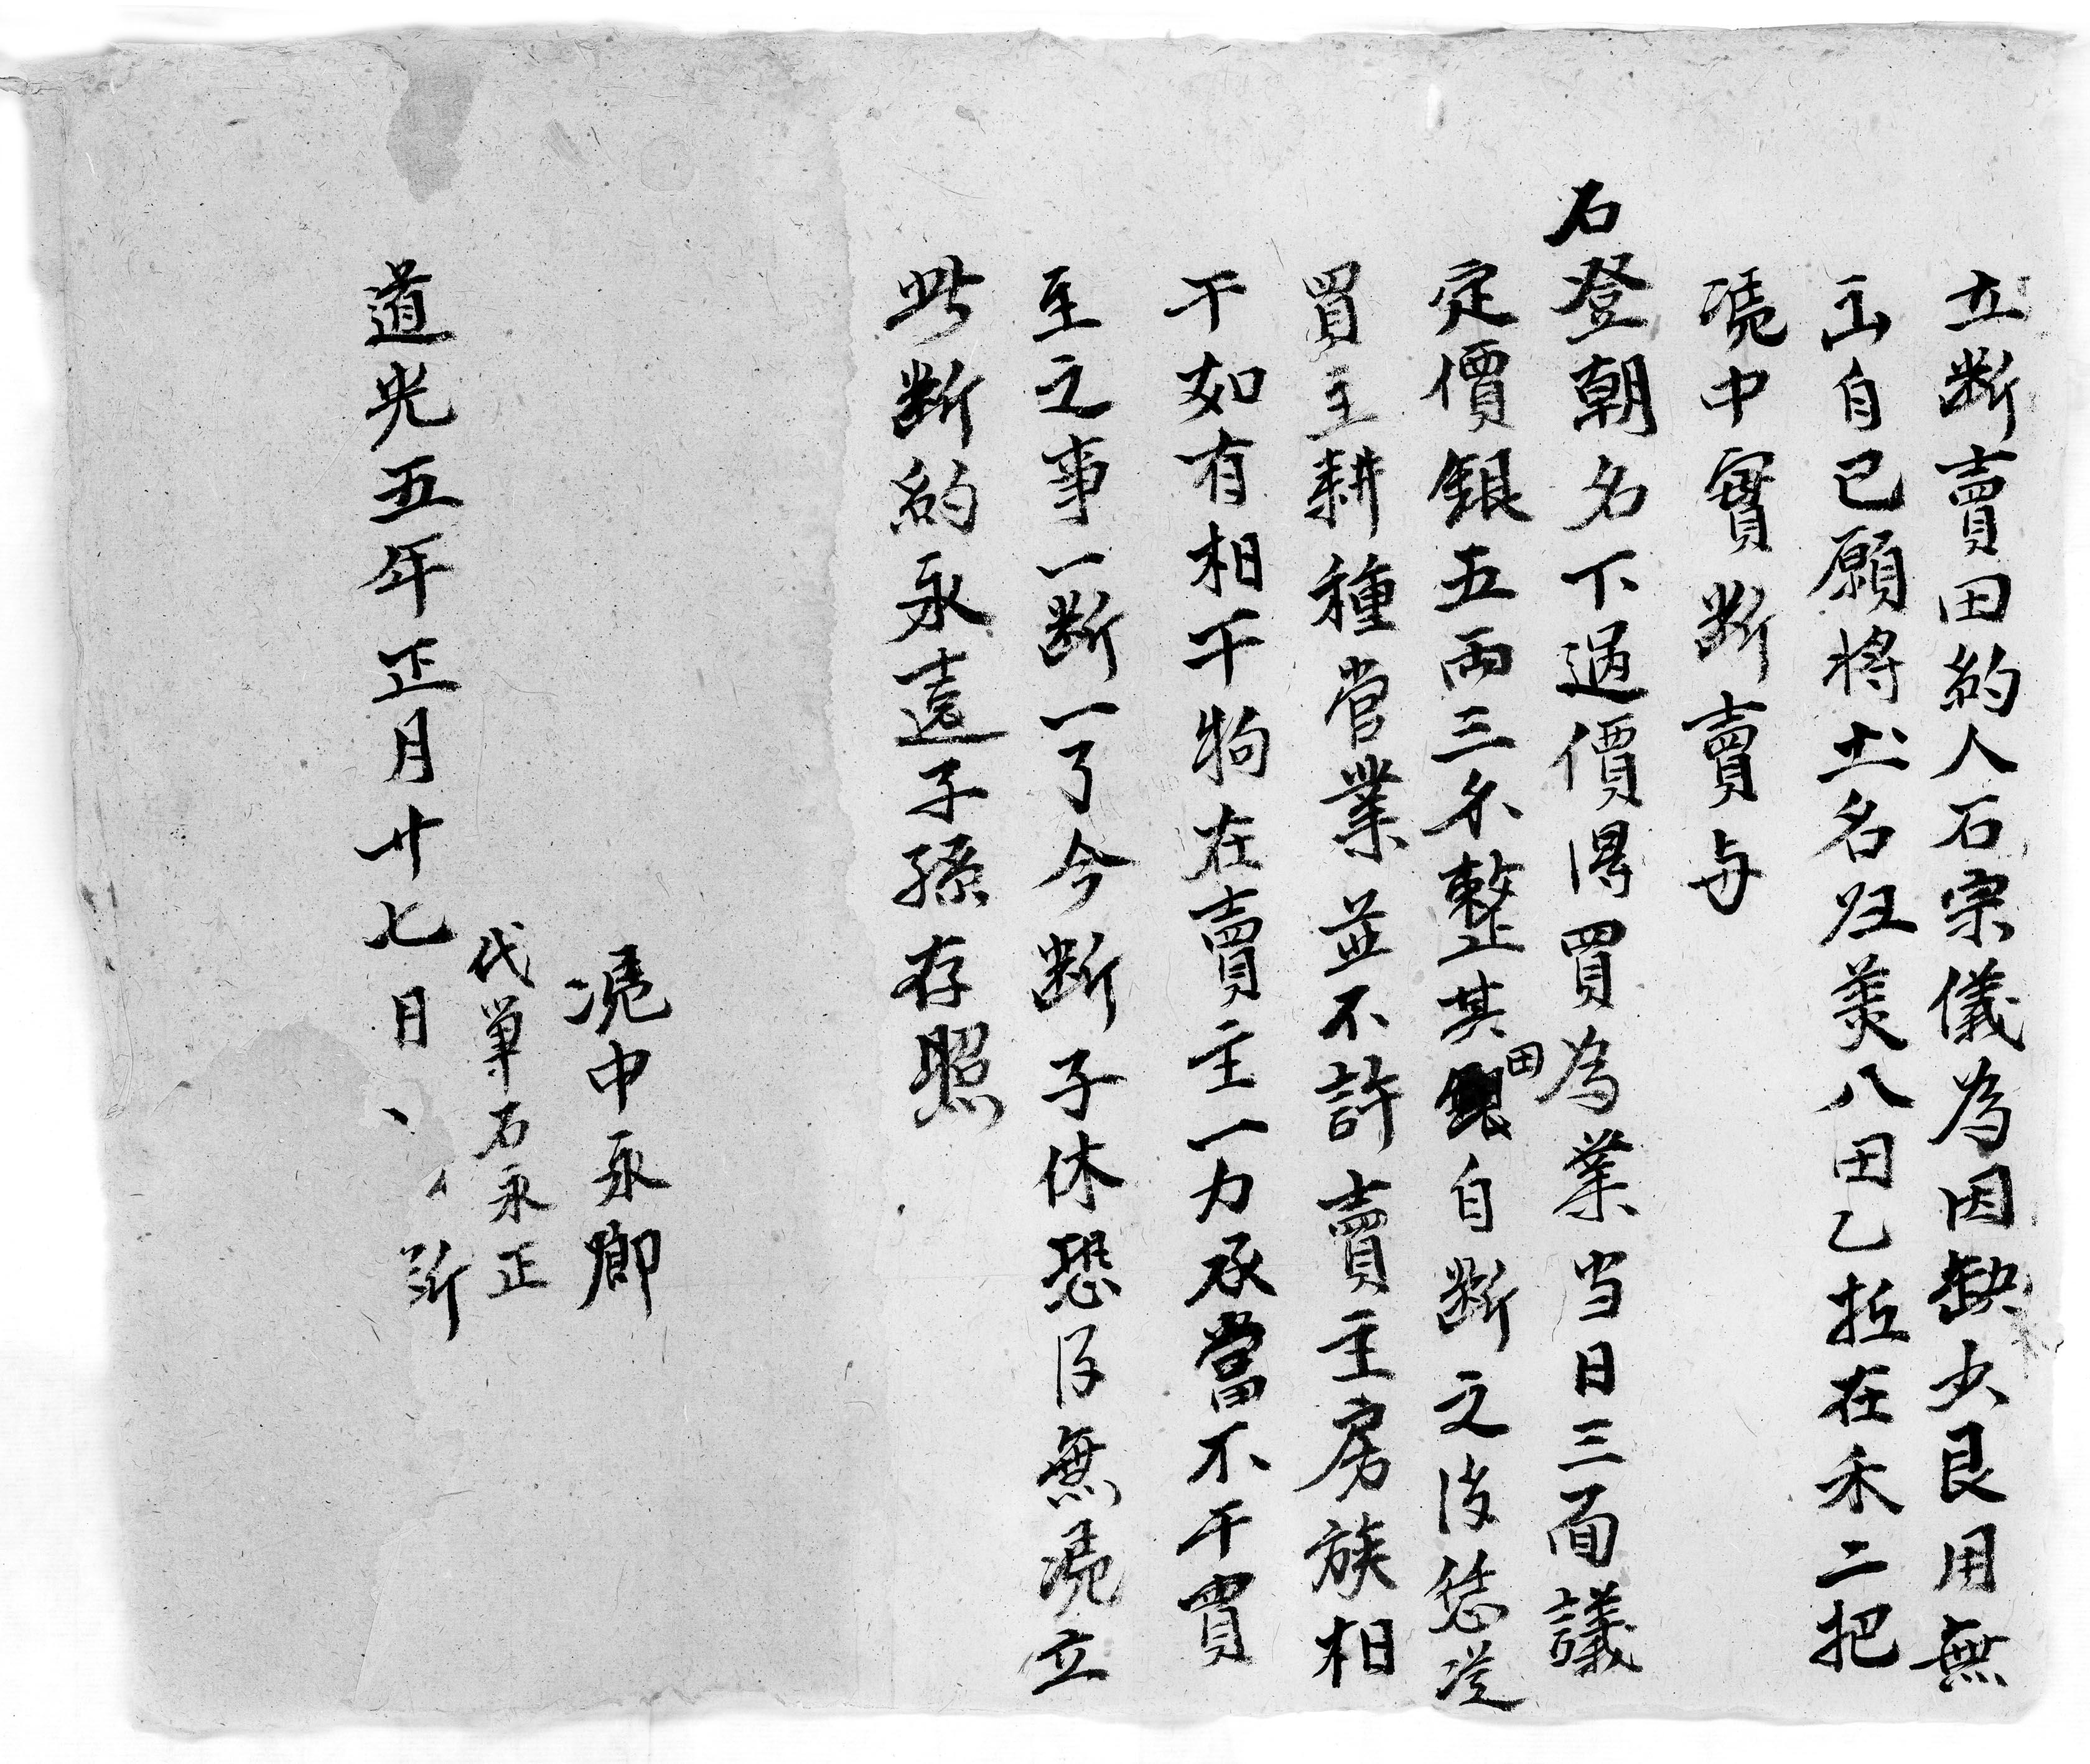 立断賣田約人石宗儀為因缺少艮用無
出自己願將土名归美八田乙坵在禾二把
凴中實断賣与
石登朝名下過價得買為業当日三面議
定價銀五両三分整其田自断之後恁従
買主耕種管業並不許賣主房族相
干如有相干物在賣主一力承當不干買
主之事一断一了今断子休恐後無凴立
此断約永遠子孫存照
凴中永卿
代筆石永正
道光五年正月廿七日、